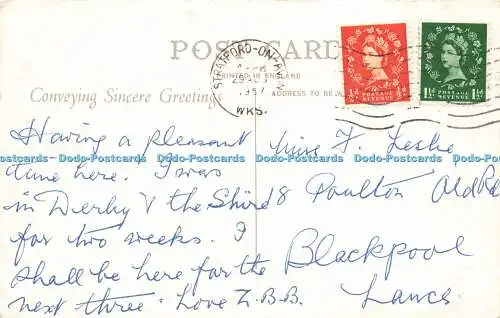 POST CARD
STRATFORD-ON-AVON
1957
WKS.
PRINTED IN ENGLAND
Conveying Sincere Greetings
ADDRESS TO BE
½d POSTAGE REVENUE ½d
1½d POSTAGE REVENUE 1½d
Having a pleasant
time here. I was
in Derby & the Shire
for two weeks. I
shall be here for the
next three - Love Z.B.B.
Miss F. Leslie
8 Poulton Old Rd
Blackpool
Lancs
Dodo-Postcards Dodo-Postcards Dodo-Postcards Dodo-Postcards Dodo-Postcards Dodo-Postcards